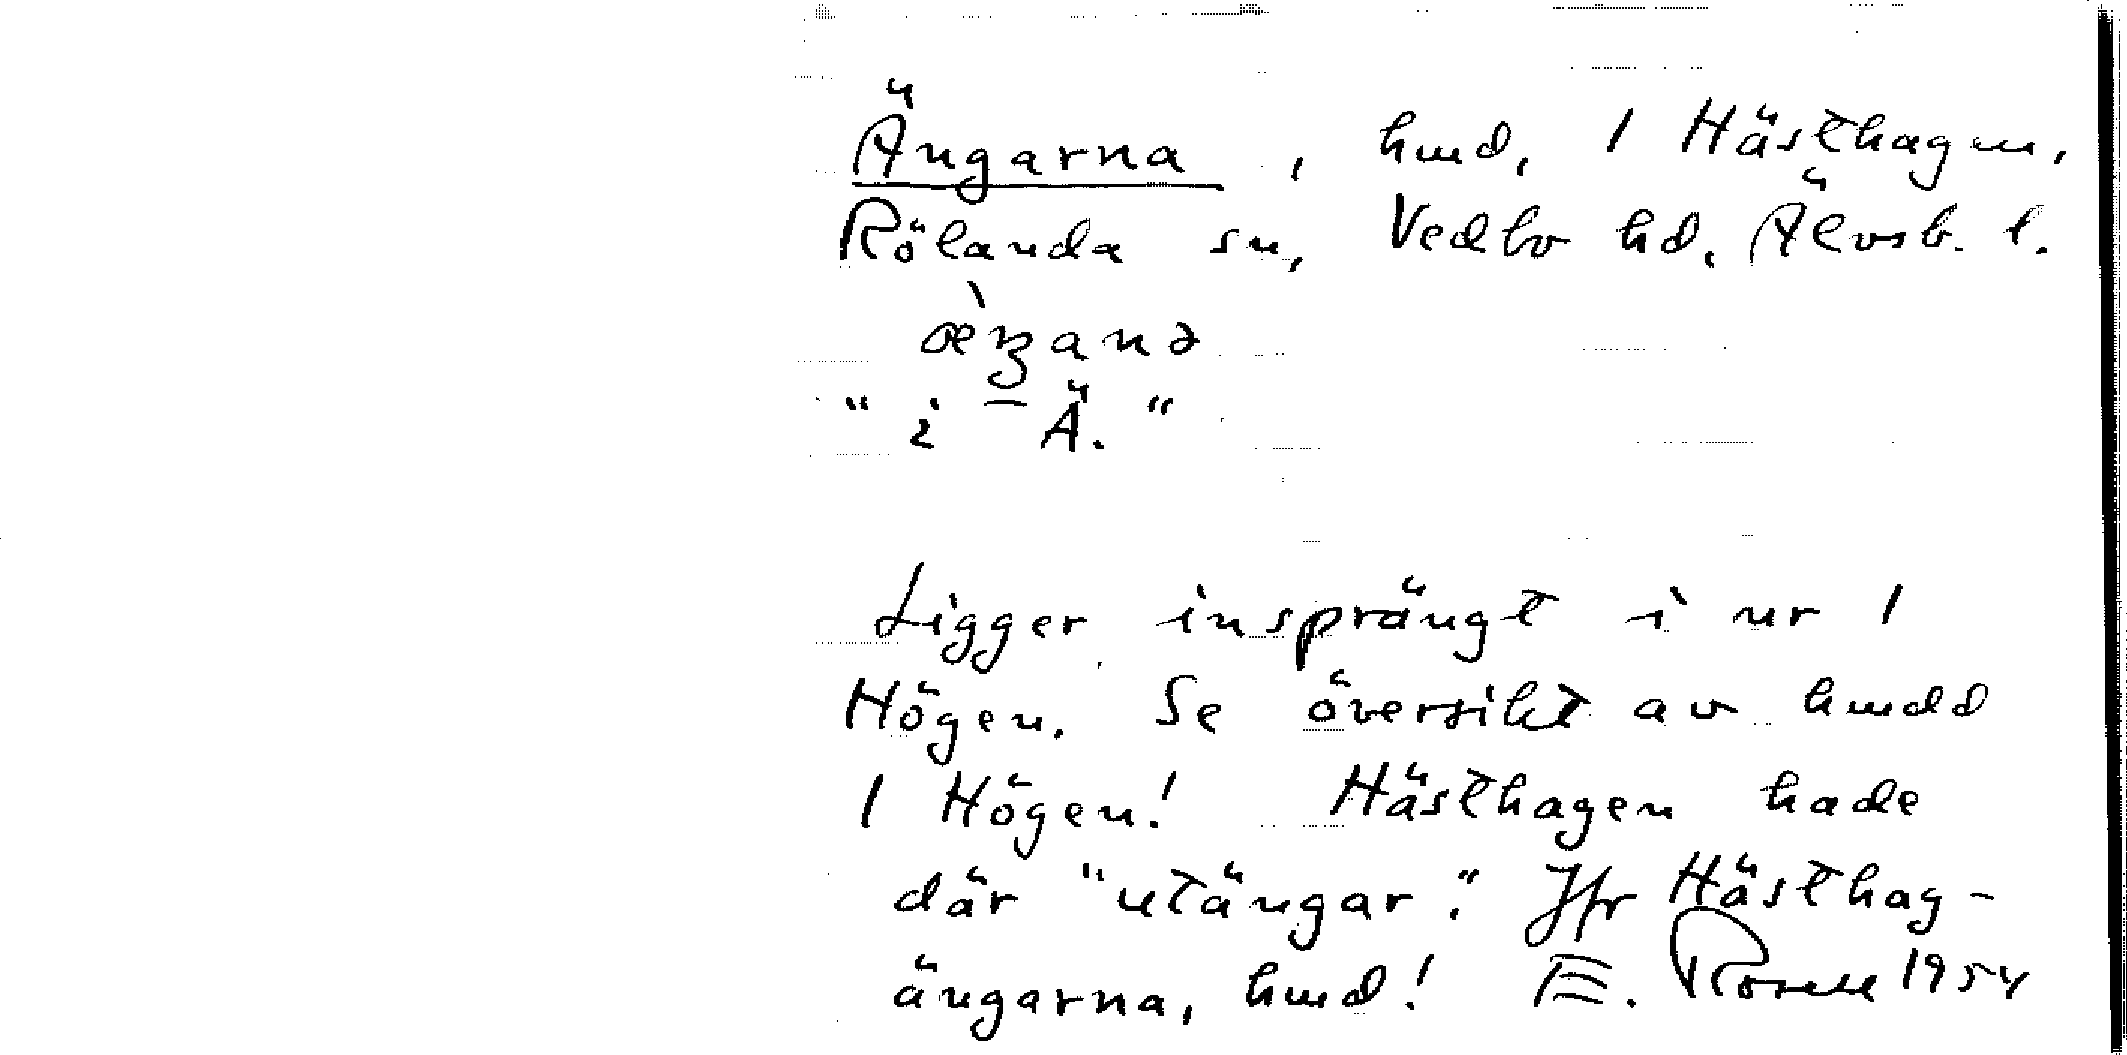 Ängarna, hmd, 1 Hästhagen,
Rölanda sn, Vedbo hd, Älvsb. l.
"i – Ä."
Ligger insprängt i nr 1
Högen. Se översikt av hmdd
1 Högen! Hästhagen hade
där "utängar". Jfr Hästhag-
ängarna, hmd! E. Rosell 1954